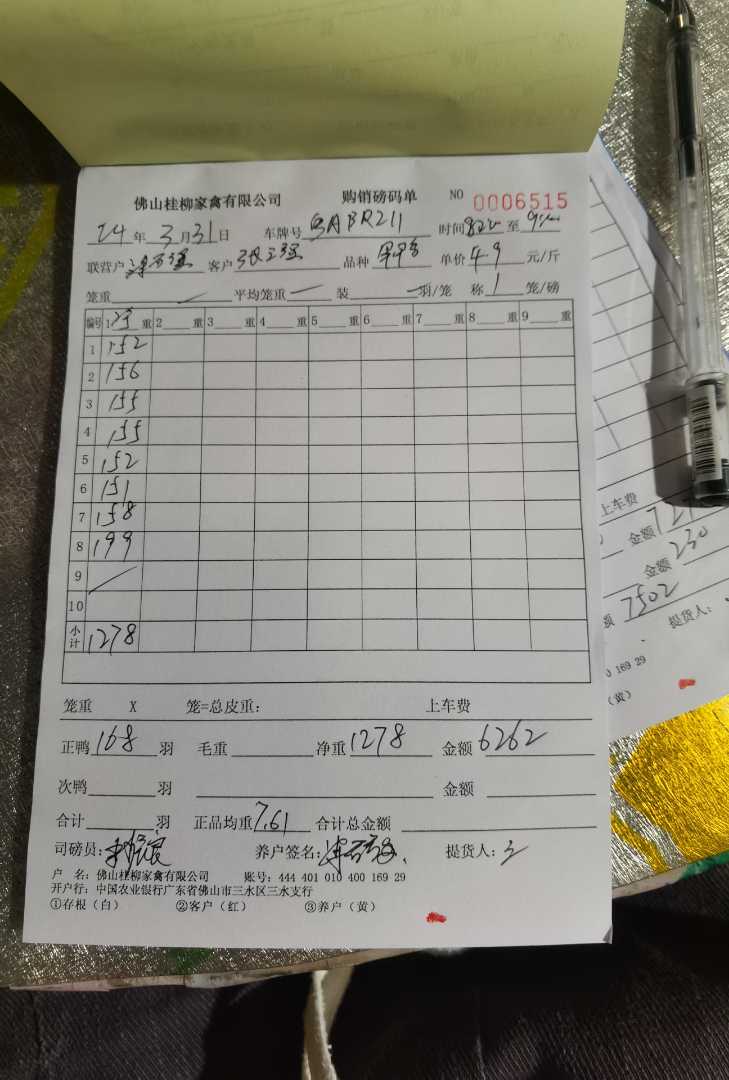 佛山桂柳家禽有限公司 购销磅码单 NO 0006515
24年3月31日 车牌号 ABR211 时间 至
联营户 客户 张 品种 单价 4.9 元/斤
笼重 平均笼重 装 羽/笼 称 1 笼/磅
编号 1 净 重 2 重 3 重 4 重 5 重 6 重 7 重 8 重 9 重
1 152
2 156
3 155
4 155
5 152
6 151
7 158
8 199
9
10
小计 1278
笼重 X 笼=总皮重: 上车费
正鸭 168 羽 毛重 净重 1278 金额 6262
次鸭 羽 金额
合计 羽 正品均重 7.61 合计总金额
司磅员: 养户签名: 提货人:
户 名: 佛山桂柳家禽有限公司 账号: 444 401 010 400 169 29
开户行: 中国农业银行广东省佛山市三水区三水支行
①存根(白) ②客户(红) ③养户(黄)
上车费
金额
金额 230
额 7502 提货人:
0 169 29
(黄)